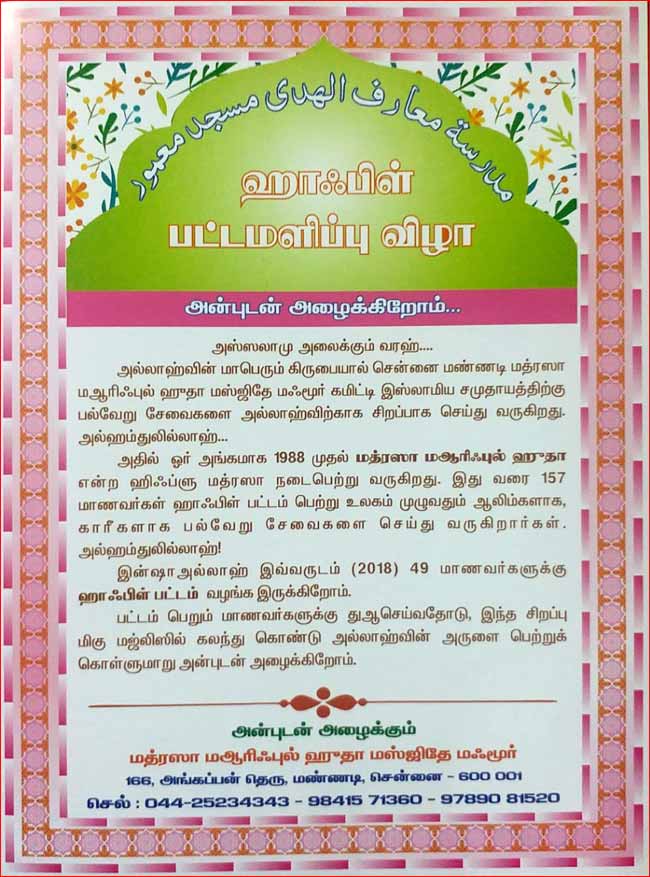 مدرسة معارف الهدى مسجد معمور
ஹாஃபிள்
பட்டமளிப்பு விழா
அன்புடன் அழைக்கிறோம்...
அஸ்ஸலாமு அலைக்கும் வரஹ்....
அல்லாஹ்வின் மாபெரும் கிருபையால் சென்னை மண்ணடி மத்ரஸா
மஆரிஃபுல் ஹுதா மஸ்ஜிதே மஃமூர் கமிட்டி இஸ்லாமிய சமுதாயத்திற்கு
பல்வேறு சேவைகளை அல்லாஹ்விற்காக சிறப்பாக செய்து வருகிறது.
அல்ஹம்துலில்லாஹ்...
அதில் ஓர் அங்கமாக 1988 முதல் மத்ரஸா மஆரிஃபுல் ஹுதா
என்ற ஹிஃப்ளு மத்ரஸா நடைபெற்று வருகிறது. இது வரை 157
மாணவர்கள் ஹாஃபிள் பட்டம் பெற்று உலகம் முழுவதும் ஆலிம்களாக,
காரீகளாக பல்வேறு சேவைகளை செய்து வருகிறார்கள்.
அல்ஹம்துலில்லாஹ்!
இன்ஷாஅல்லாஹ் இவ்வருடம் (2018) 49 மாணவர்களுக்கு
ஹாஃபிள் பட்டம் வழங்க இருக்கிறோம்.
பட்டம் பெறும் மாணவர்களுக்கு துஆசெய்வதோடு, இந்த சிறப்பு
மிகு மஜ்லிஸில் கலந்து கொண்டு அல்லாஹ்வின் அருளை பெற்றுக்
கொள்ளுமாறு அன்புடன் அழைக்கிறோம்.
அன்புடன் அழைக்கும்
மத்ரஸா மஆரிஃபுல் ஹுதா மஸ்ஜிதே மஃமூர்
166, அங்கப்பன் தெரு, மண்ணடி, சென்னை - 600 001
செல் : 044-25234343 - 98415 71360 - 97890 81520